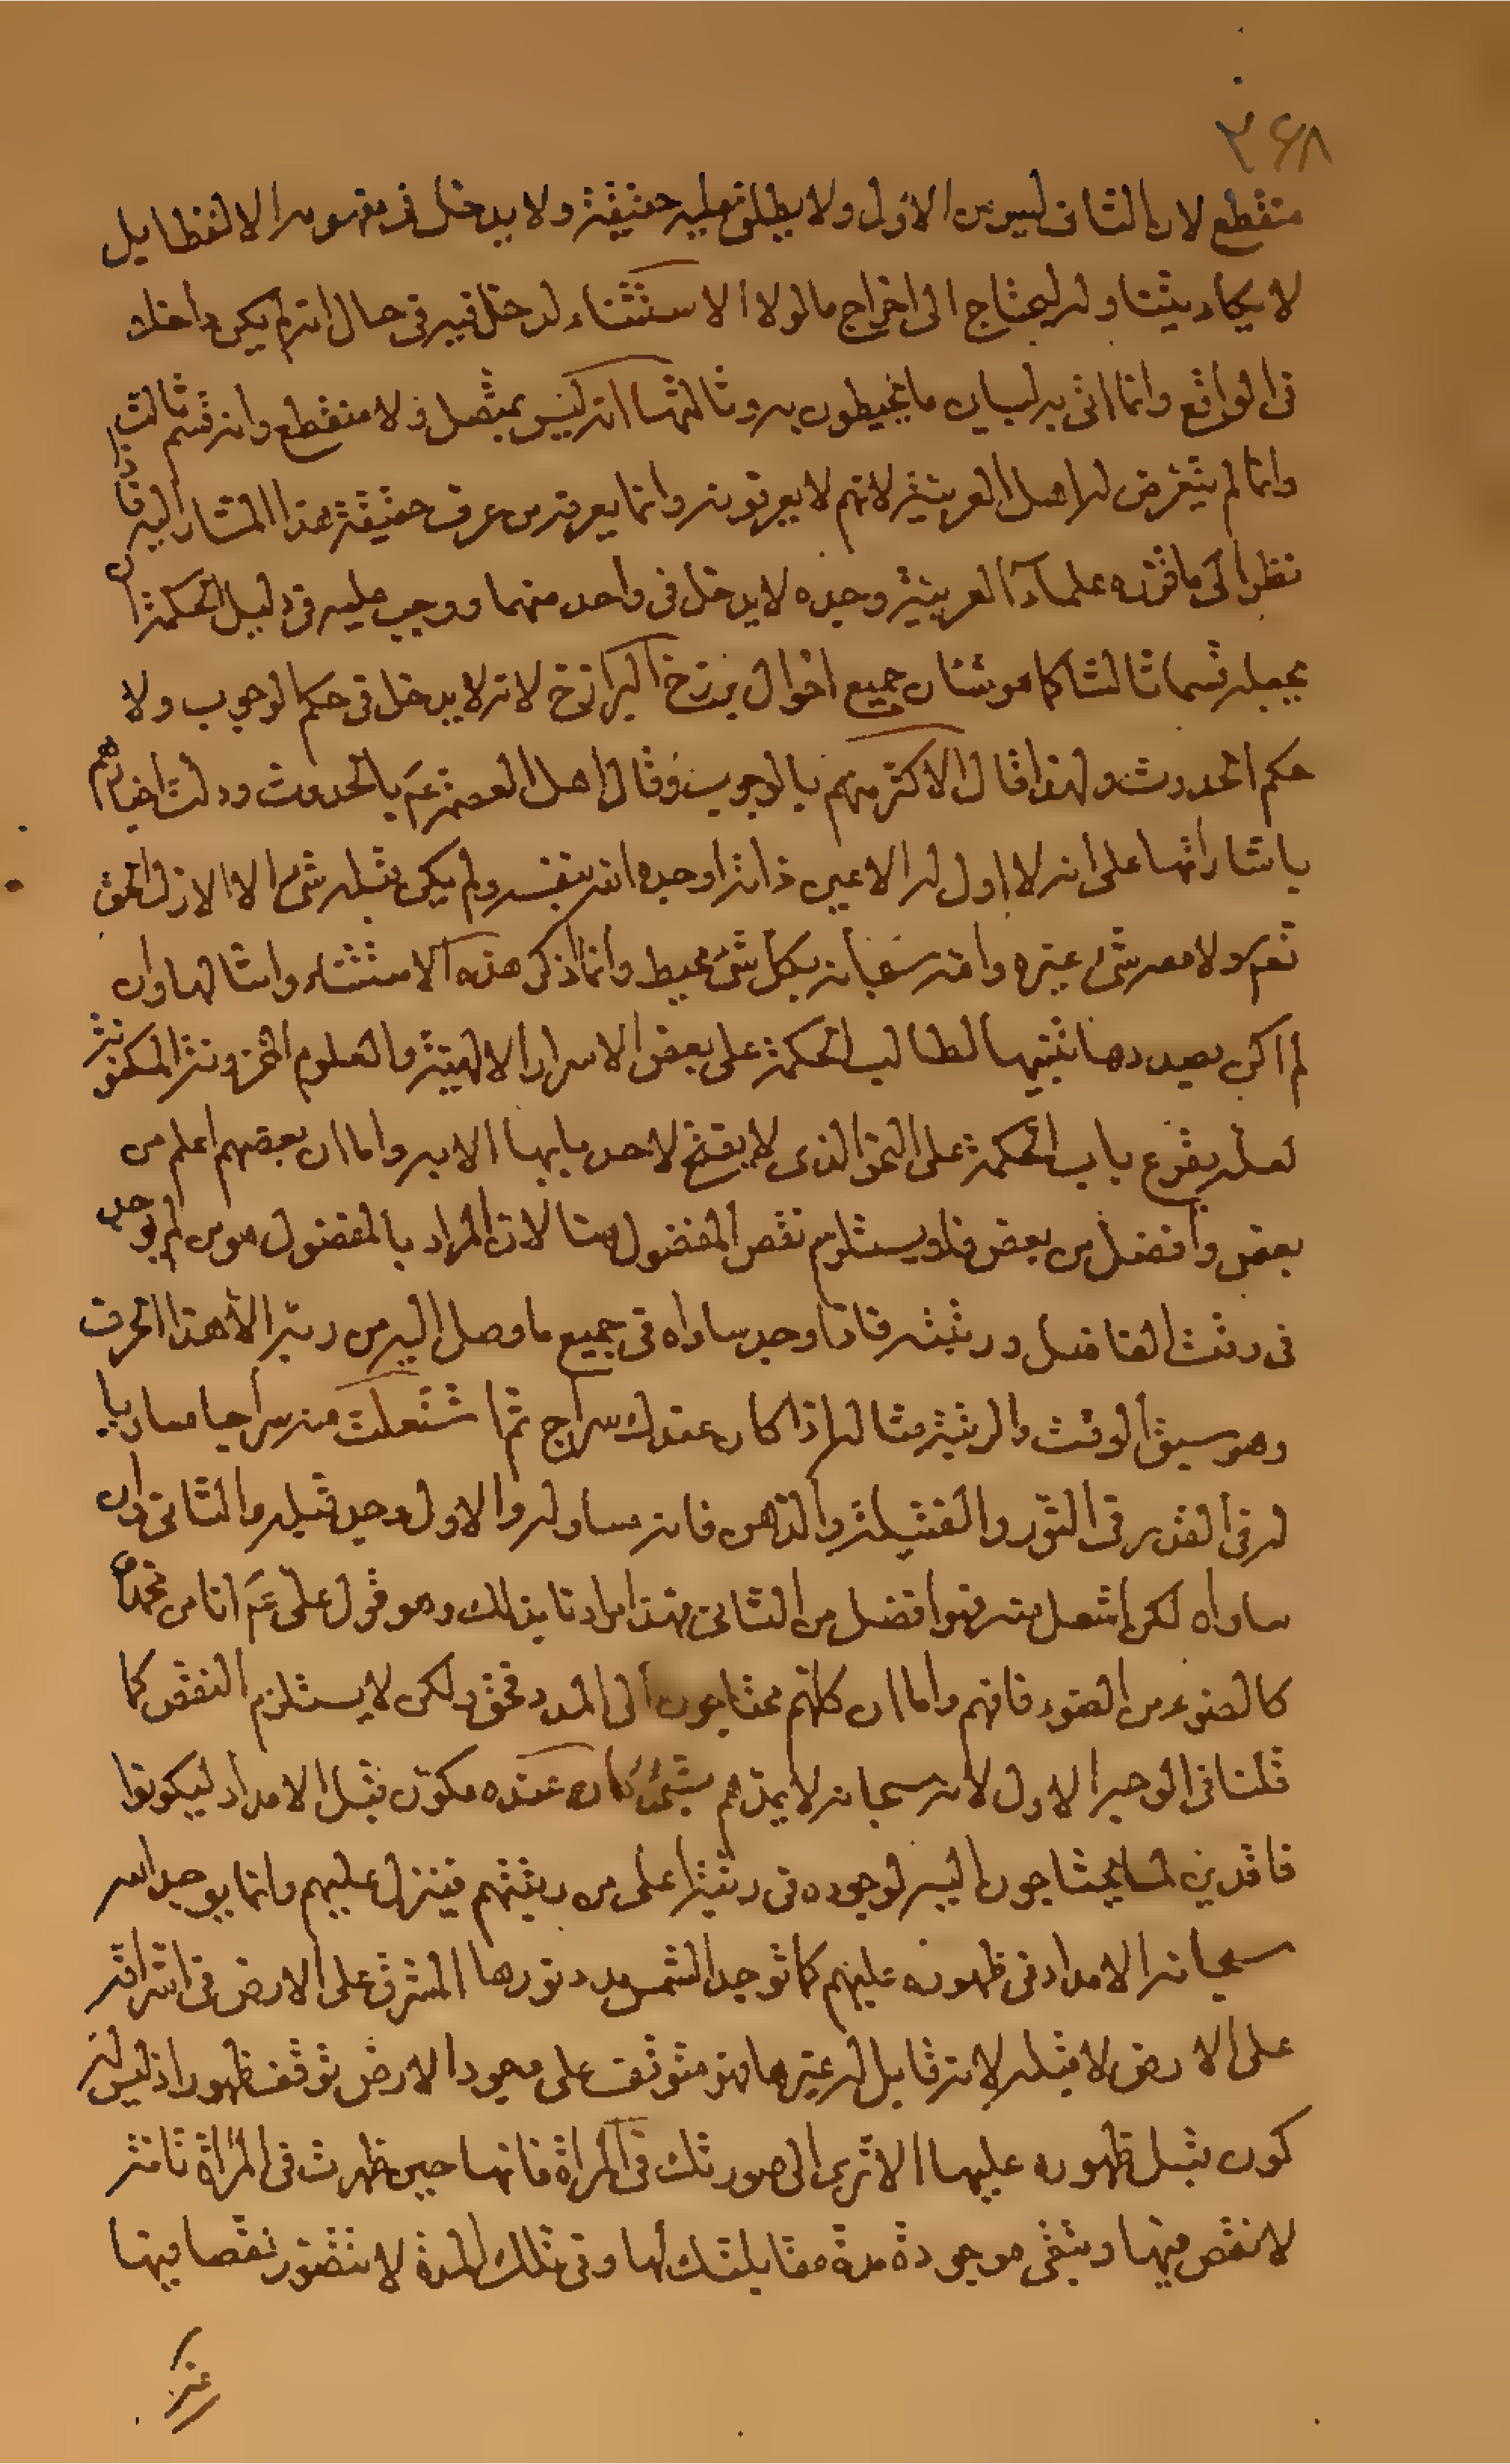 ۳۶۸
منقطع لان الثانى ليس من الاول ولا يطلق عليه حقيقة ولا يدخل فى مفهومه الا لفظا بل
لا يكاد يتناوله ليحتاج الى اخراج ما لولا الاستثناء لدخل فيه فى حال انه لم يكن داخلا
فى الواقع وانما اتى به لبيان ما يحيطون به وثالثها انه ليس بمتصل ولا منقطع وانه قسم ثالث
وانما لم يتعرض له اهل العربية لانهم لا يعرفونه وانما يعرفه من عرف حقيقة هذا المشار اليه فانه
نظرا الى ما قرره علماء العربية وحده لا يدخل فى واحد منهما ووجب عليه فى دليل الحكمة ان
يجعله قسما ثالثا كما هو شان جميع احوال برزخ البرازخ لانه لا يدخل فى حكم الوجوب ولا
حكم الحدوث ولهذا قال الاكثر منهم بالوجوب وقال اهل العصمة عم بالحدوث ودلت اخبارهم
باشاراتها على انه لا اول له الا عين ذاته اوجده الله بنفسه ولم يكن قبله شئ الا الازل الحق
تعم ولا معه شئ غيره والله سبحانه بكل شئ محيط وانما اذكر هذه الاستثناء وامثالها وان
لم اكن بصددها تنبيها لطالب الحكمة على بعض الاسرار الالهية والعلوم المخزونة المكنونة
لعله يقرع باب الحكمة على النحو الذى لا يفتح لاحد بابها الا به واما ان بعضهم اعلم من
بعض وافضل من بعض فلا يستلزم نقص المفضول هنا لان المراد بالمفضول هو من لم يوجد
فى وقت الفاضل ورتبته فاذا وجد ساواه فى جميع ما وصل اليه من ربه الا هذا الحرف
وهو سبق الوقت والرتبة مثاله اذا كان عندك سراج ثم اشتعلت منه سراجا مساويا
له فى القدر فى النور والفتيلة والدهن فانه مساو له والاول وجد قبله والثانى وان
ساواه لكن اشعل منه فهو افضل من الثانى فهذا مرادنا بذلك وهو قول على عم انا من محمد ص
كالضوء من الضوء فافهم واما ان كلهم محتاجون الى المدد فحق ولكن لا يستلزم النقص كما
قلنا فى الوجه الاول لانه سبحانه لا يمدهم بشئ كان عنده مكون قبل الامداد ليكونوا
فاقدين لما يحتاجون اليه لوجوده فى رتبة اعلى من رتبتهم فينزل عليهم وانما يوجد الله
سبحانه الامداد فى ظهوره عليهم كما توجد الشمس مدد نورها المشرق على الارض فى اشراقه
على الارض لا قبله لانه قابل له غيرها فهو متوقف على وجود الارض توقف ظهور اذ ليس له
كون قبل ظهوره عليها الا ترى الى صورتك فى المراة فانها حين ظهرت فى المراة تامة
لا نقص فيها وتبقى موجودة مدة مقابلتك لها وفى تلك المدة لا يتصور نقصا فيها